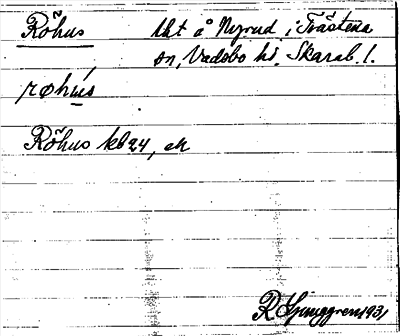 Röhus lht å Nyrud i Trästena
sn, Vadsbo hd, Skarab. l.
røhùs
Röhus kb 24, ek
R Ljunggren 1931